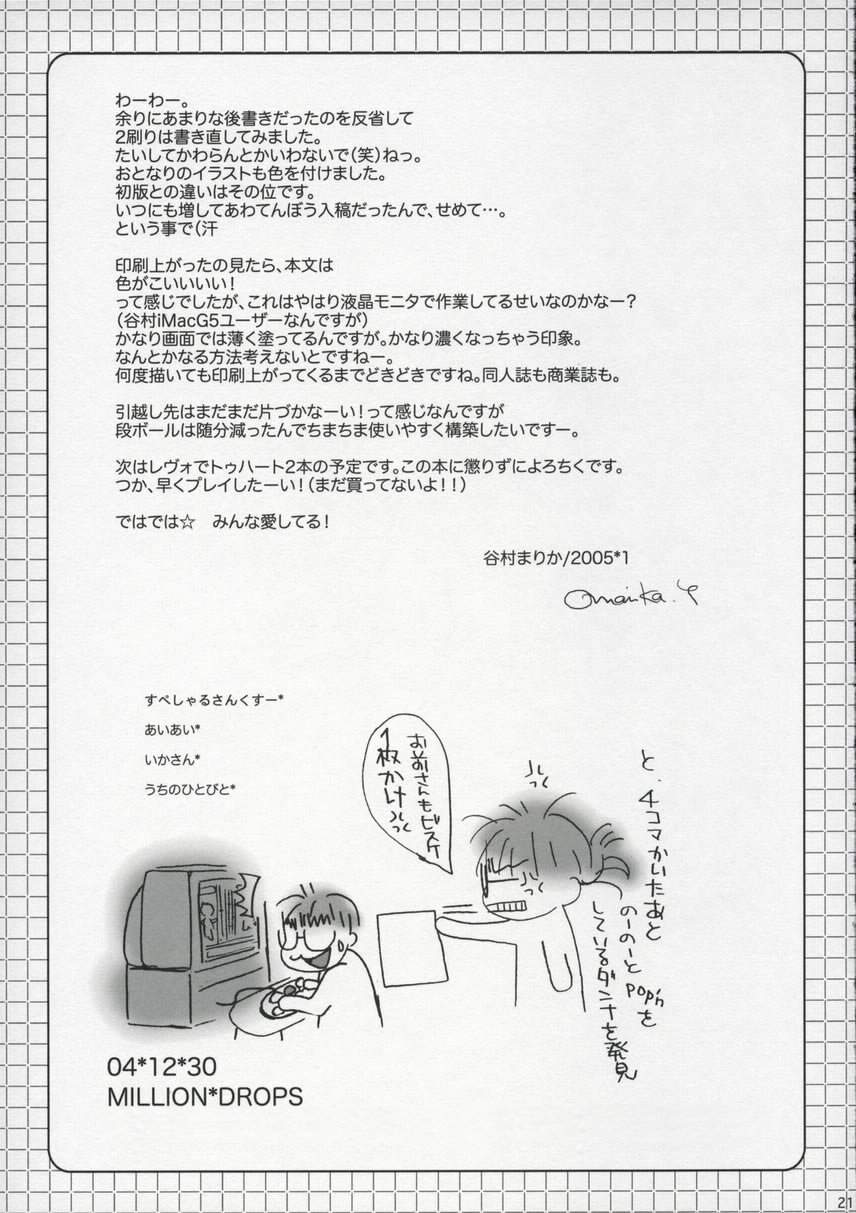 わーわー。
余りにあまりな後書きだったのを反省して
2刷りは書き直してみました。
たいしてかわらんとかいわないで(笑)ねっ。
おとなりのイラストも色を付けました。
初版との違いはその位です。
いつにも増してあわてんぼう入稿だったんで、せめて…。
という事で(汗

印刷上がったの見たら、本文は
色がこいいいい！
って感じでしたが、これはやはり液晶モニタで作業してるせいなのかなー？
(谷村iMacG5ユーザーなんですが)
かなり画面では薄く塗ってるんですが。かなり濃くなっちゃう印象。
なんとかなる方法考えないとですねー。
何度描いても印刷上がってくるまでどきどきですね。同人誌も商業誌も。

引越し先はまだまだ片づかなーい！って感じなんですが
段ボールは随分減ったんでちまちま使いやすく構築したいですー。

次はレヴォでトゥハート2本の予定です。この本に懲りずによろちくです。
つか、早くプレイしたーい！(まだ買ってないよ！！)

ではでは☆　みんな愛してる！

谷村まりか/2005*1

すぺしゃるさんくすー*
あいあい*
いかさん*
うちのひとびと*

お前さんもビスケ
1枚かけ

と、4コマかいたあと
のーのーとpop'nを
しているダンナを発見

04*12*30
MILLION*DROPS
21